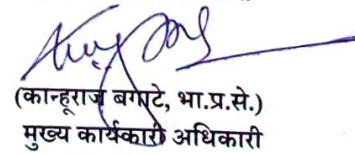 (कान्हूराज बगाटे, भा.प्र.से.)
मुख्य कार्यकारी अधिकारी